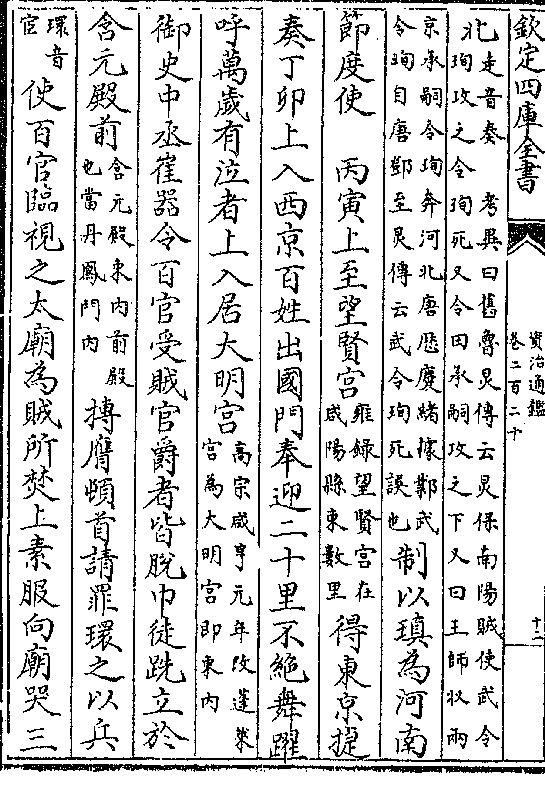 欽定四庫全書 資治通鑑 卷二百二十 十一
北走音奏 考異曰舊魯炅傳云炅保南陽賊使武令珣攻之令珣死又令田承嗣攻之下又曰王師收兩
京承嗣令珣奔河北唐歷慶緒據鄴武令珣自唐鄧至炅傳云武令珣死誤也制以瑱為河南
節度使 丙寅上至望賢宮雍錄望賢宮在咸陽縣東數里得東京捷
奏丁卯上入西京百姓出國門奉迎二十里不絶舞躍
呼萬歲有泣者上入居大明宮高宗咸亨元年改蓬萊宮為大明宮即東内
御史中丞崔器令百官受賊官爵者皆脫巾徒跣立於
含元殿前含元殿東内前殿也當丹鳳門内搏膺頓首請罪環之以兵
環音宦使百官臨視之太廟為賊所焚上素服向廟哭三